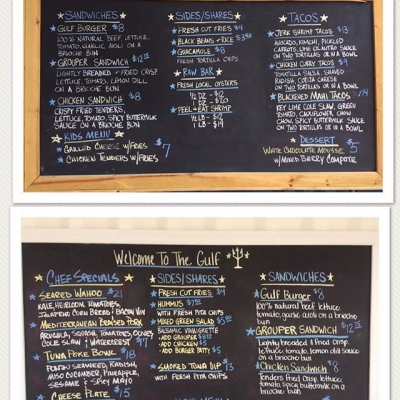 SANDWICHES
GULF BURGER $8
100% NATURAL BEEF, LETTUCE,
TOMATO, GARLIC AIOLI ON A
BRIOCHE BUN
GROUPER SANDWICH $12.00
LIGHTLY BREADED + FRIED CRISP
LETTUCE, TOMATO, LEMON DILL
ON A BRIOCHE BUN
CHICKEN SANDWICH $8
CRISPY FRIED TENDERS,
LETTUCE, TOMATO, SPICY BUTTERMILK
SAUCE ON A BRIOCHE BUN
KIDS MENU
GRILLED CHEESE W/FRIES $7
CHICKEN TENDERS W/FRIES
SIDES/SHARES
FRESH CUT FRIES $4
BLACK BEANS + RICE $3.50
GUACAMOLE $8
FRESH TORTILLA CHIPS
RAW BAR
FRESH LOCAL OYSTERS
1/2 DZ - $12
DZ - $20
PEEL + EAT SHRIMP
1/2 LB - $12
1 LB - $19
TACOS
JERK SHRIMP TACOS $13
AVOCADO, PICKLED
CARROTS, LIME CILANTRO SAUCE
ON TWO TORTILLAS OR IN A BOWL
CHICKEN CURRY TACOS $9
TOMATILLA SALSA, SHAVED
RADISH
ON TWO TORTILLAS OR IN A BOWL
BLACKENED MAHI TACOS $14
KEY LIME COLE SLAW, GREEN
TOMATO, CAULIFLOWER CHOW
CHOW, SPICY BUTTERMILK SAUCE
ON TWO TORTILLAS OR IN A BOWL
DESSERT
WHITE CHOCOLATE MOUSSE $5
W/MIXED BERRY COMPOTE
Welcome To The Gulf
CHEF SPECIALS
SEARED WAHOO $21
KALE, HEIRLOOM TOMATOES,
JALAPENO CORN BREAD + BACON VIN
MEDITERRANEAN BRAISED PORK
ARUGULA, SQUASH, TOMATOES, OLIVES
COLE SLAW $17
TUNA POKE BOWL $18
PONZU, SEAWEED, RADISH,
MISO CUCUMBER, PINEAPPLE,
SESAME + SPICY MAYO
CHEESE PLATE $15
SIDES/SHARES
FRESH CUT FRIES $4
HUMMUS
WITH FRESH PITA CHIPS
MIXED GREEN SALAD
BALSAMIC VINAIGRETTE
ADD GROUPER
ADD CHICKEN
ADD BURGER PATTY $5
SMOKED TUNA DIP $13
WITH FRESH PITA CHIPS
SANDWICHES
Gulf Burger $8
100% natural beef, lettuce
tomato, garlic aioli on a brioche
bun
GROUPER SANDWICH $12.00
Lightly breaded + fried crisp
lettuce, tomato, lemon dill sauce
on a brioche bun
Chicken Sandwich $8
Tenders fried crisp,
lettuce, tomato, spicy
buttermilk sauce on a brioche
bun